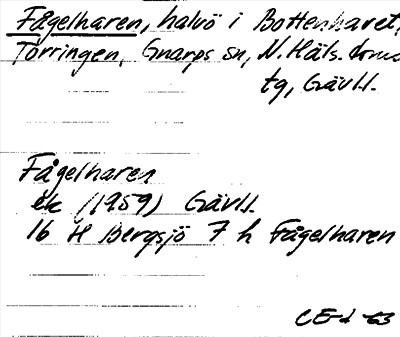 Fågelharen, halvö i Bottenhavet,
Törringen, Gnarps sn, N. Häls. doms
tg, Gävl.l.
Fågelharen
ek (1959) Gävl.l.
16 H Bergsjö 7 h Fågelharen
CE-d -63